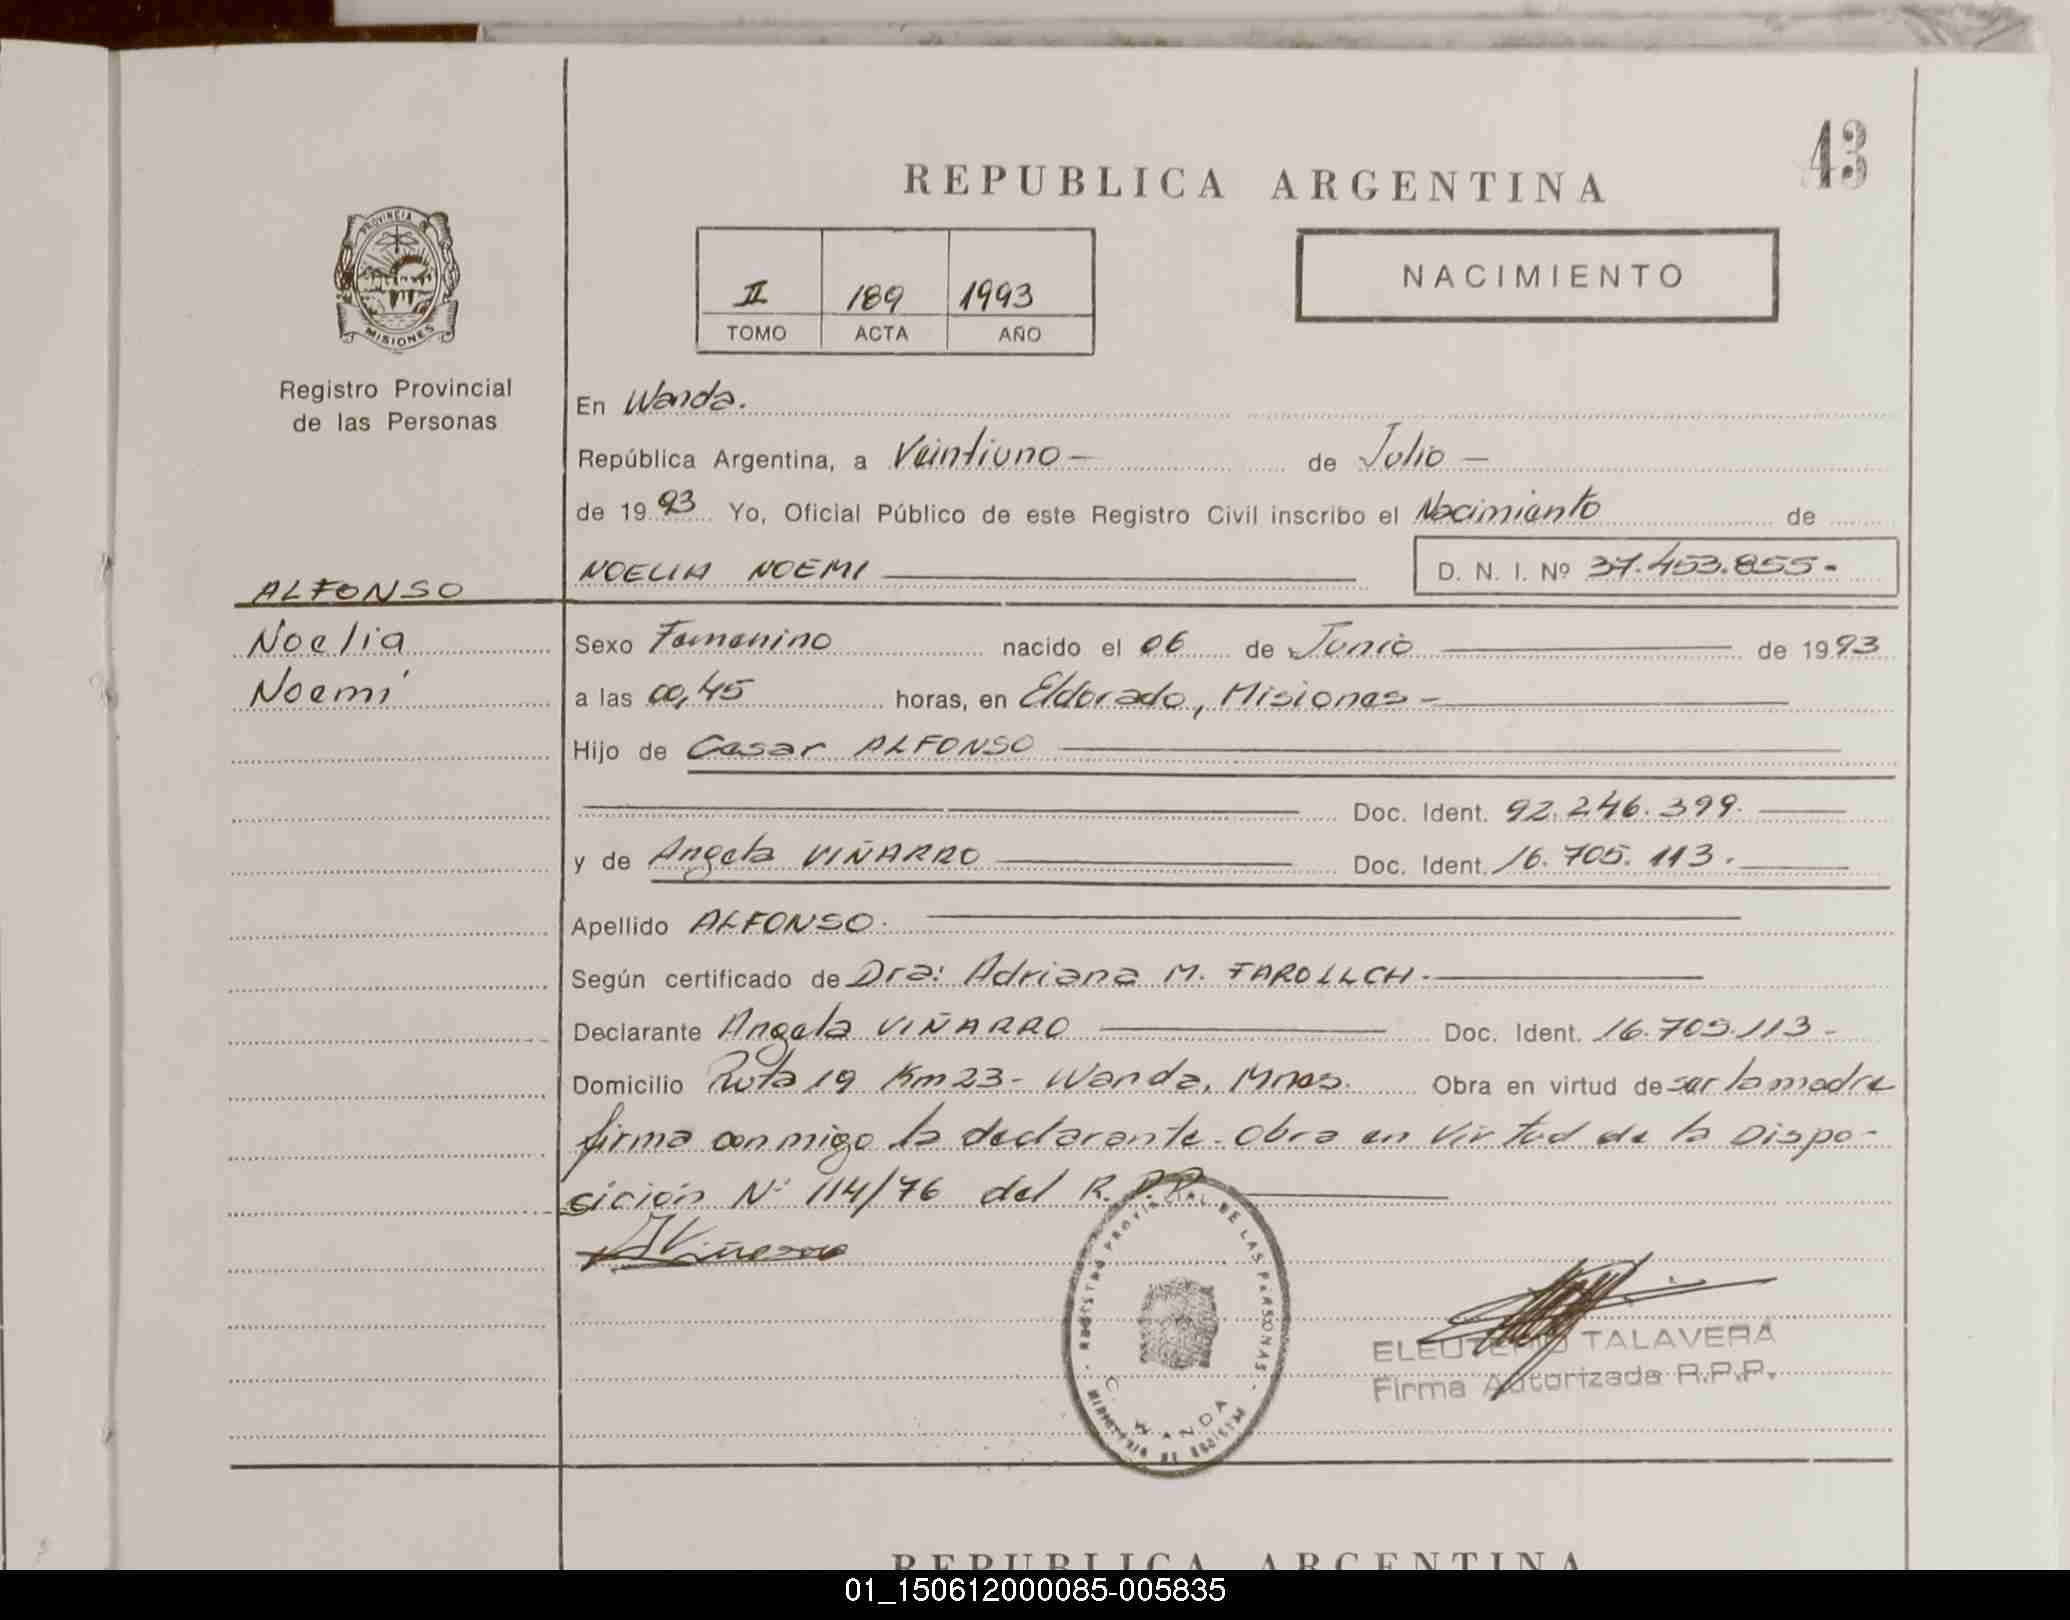 43
REPUBLICA ARGENTINA
PROVINCIA
MISIONES
Registro Provincial
de las Personas
II 189 1993
TOMO ACTA AÑO
NACIMIENTO
En Wanda.
República Argentina, a Veintiuno — de Julio —
de 1993 Yo, Oficial Público de este Registro Civil inscribo el Nacimiento de
ALFONSO
NOELIA NOEMI D. N. I. Nº 37.453.855-
Noelia
Sexo Femenino nacido el 06 de Junio de 1993
Noemí
a las 00,45 horas, en Eldorado, Misiones -
Hijo de Cesar ALFONSO
Doc. Ident. 92.246.399.
y de Angela VIÑARRO Doc. Ident. 16.705.113.
Apellido ALFONSO.
Según certificado de Dra: Adriana M. FAROLLCH.
Declarante Angela VIÑARRO Doc. Ident. 16.705.113-
Domicilio Ruta 19 Km 23- Wanda, Mnes. Obra en virtud de ser la madre
firma conmigo la declarante. Obra en Virtud de la Dispo-
sición Nº 114/76 del R.P.P.
AViñarro
REGISTRO PROVINCIAL DE LAS PERSONAS
WANDA
ELEUTERIO TALAVERA
Firma Autorizada R.P.P.
REPUBLICA ARGENTINA
01_150612000085-005835